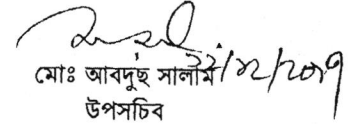 ২২/১২/২০১৭
মোঃ আবদুছ সালাম
উপসচিব